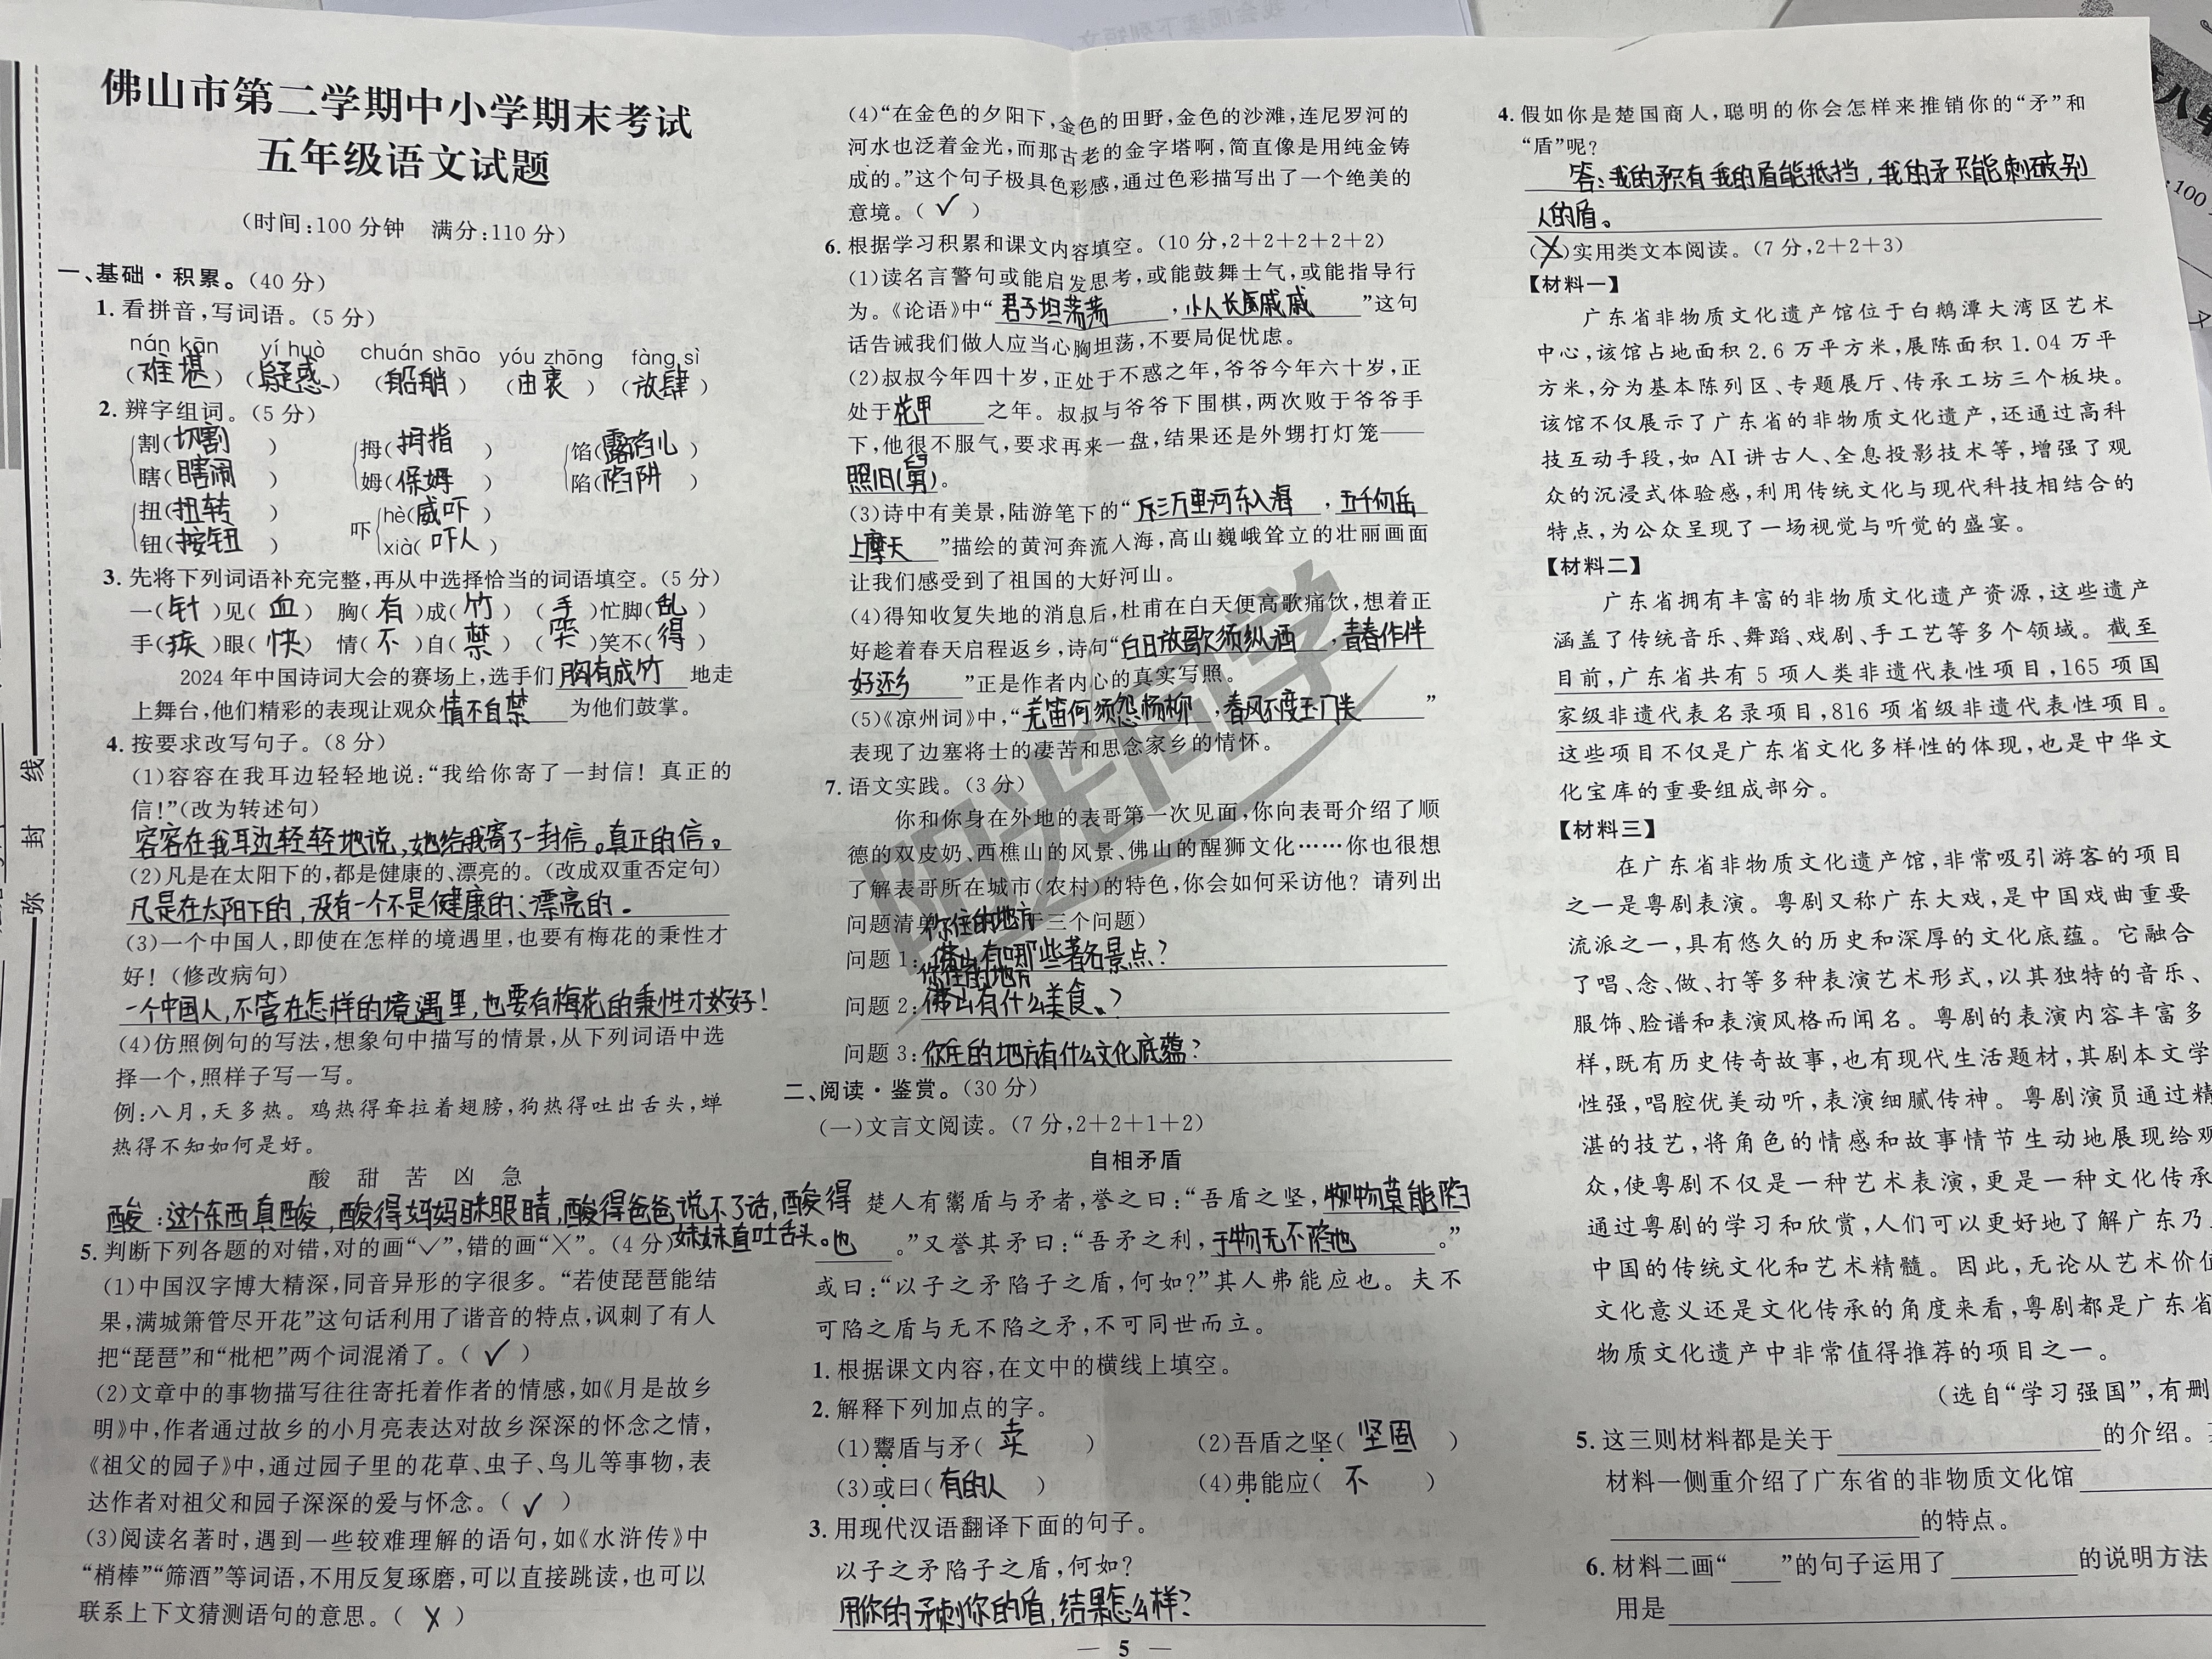 佛山市第二学期中小学期末考试
五年级语文试题
(时间:100分钟 满分:110分)
一、基础·积累。(40分)
1. 看拼音,写词语。(5分)
nán kān yí huò chuán shāo yóu zhōng fàng sì
(难堪)(疑惑)(船艄)(由衷)(放肆)
2. 辨字组词。(5分)
割(切割) 拇(拇指) 馅(露馅儿)
瞎(瞎闹) 姆(保姆) 陷(陷阱)
扭(扭转) 吓 hè(威吓)
钮(按钮) xià(吓人)
3. 先将下列词语补充完整,再从中选择恰当的词语填空。(5分)
一(针)见(血) 胸(有)成(竹) (手)忙脚(乱)
手(疾)眼(快) 情(不)自(禁) (哭)笑不(得)
2024年中国诗词大会的赛场上,选手们胸有成竹地走
上舞台,他们精彩的表现让观众情不自禁为他们鼓掌。
4. 按要求改写句子。(8分)
(1)容容在我耳边轻轻地说:“我给你寄了一封信!真正的
信!”(改为转述句)
容容在我耳边轻轻地说,她给我寄了一封信。真正的信。
(2)凡是在太阳下的,都是健康的、漂亮的。(改成双重否定句)
凡是在太阳下的,没有一个不是健康的、漂亮的.
(3)一个中国人,即使在怎样的境遇里,也要有梅花的秉性才
好!(修改病句)
一个中国人,不管在怎样的境遇里,也要有梅花的秉性才好!
(4)仿照例句的写法,想象句中描写的情景,从下列词语中选
择一个,照样子写一写。
例:八月,天多热。鸡热得耷拉着翅膀,狗热得吐出舌头,蝉
热得不知如何是好。
酸 甜 苦 凶 急
酸:这个东西真酸,酸得妈妈眯眼睛,酸得爸爸说不了话,酸得
妹妹直吐舌头。
5. 判断下列各题的对错,对的画“✓”,错的画“×”。(4分)
(1)中国汉字博大精深,同音异形的字很多。“若使琵琶能结
果,满城箫管尽开花”这句话利用了谐音的特点,讽刺了有人
把“琵琶”和“枇杷”两个词混淆了。(✓)
(2)文章中的事物描写往往寄托着作者的情感,如《月是故乡
明》中,作者通过故乡的小月亮表达对故乡深深的怀念之情,
《祖父的园子》中,通过园子里的花草、虫子、鸟儿等事物,表
达作者对祖父和园子深深的爱与怀念。(✓)
(3)阅读名著时,遇到一些较难理解的语句,如《水浒传》中
“梢棒”“筛酒”等词语,不用反复琢磨,可以直接跳读,也可以
联系上下文猜测语句的意思。(X)
(4)“在金色的夕阳下,金色的田野,金色的沙滩,连尼罗河的
河水也泛着金光,而那古老的金字塔啊,简直像是用纯金铸
成的。”这个句子极具色彩感,通过色彩描写出了一个绝美的
意境。(✓)
6. 根据学习积累和课文内容填空。(10分,2+2+2+2+2)
(1)读名言警句或能启发思考,或能鼓舞士气,或能指导行
为。《论语》中“君子坦荡荡,小人长戚戚”这句
话告诫我们做人应当心胸坦荡,不要局促忧虑。
(2)叔叔今年四十岁,正处于不惑之年,爷爷今年六十岁,正
处于花甲之年。叔叔与爷爷下围棋,两次败于爷爷手
下,他很不服气,要求再来一盘,结果还是外甥打灯笼——
照旧(舅)。
(3)诗中有美景,陆游笔下的“三万里河东入海,五千仞岳
上摩天”描绘的黄河奔流入海,高山巍峨耸立的壮丽画面
让我们感受到了祖国的大好河山。
(4)得知收复失地的消息后,杜甫在白天便高歌痛饮,想着正
好趁着春天启程返乡,诗句“白日放歌须纵酒,青春作伴
好还乡”正是作者内心的真实写照。
(5)《凉州词》中,“羌笛何须怨杨柳,春风不度玉门关”
表现了边塞将士的凄苦和思念家乡的情怀。
7. 语文实践。(3分)
你和你身在外地的表哥第一次见面,你向表哥介绍了顺
德的双皮奶、西樵山的风景、佛山的醒狮文化……你也很想
了解表哥所在城市(农村)的特色,你会如何采访他?请列出
问题清单 于三个问题)
你住的地方
问题1:佛山有哪些著名景点?
你住的地方
问题2:佛山有什么美食?
问题3:你住的地方有什么文化底蕴?
二、阅读·鉴赏。(30分)
(一)文言文阅读。(7分,2+2+1+2)
自相矛盾
楚人有鬻盾与矛者,誉之曰:“吾盾之坚,物莫能陷
也。”又誉其矛曰:“吾矛之利,于物无不陷也。”
或曰:“以子之矛陷子之盾,何如?”其人弗能应也。夫不
可陷之盾与无不陷之矛,不可同世而立。
1. 根据课文内容,在文中的横线上填空。
2. 解释下列加点的字。
(1)鬻盾与矛(卖) (2)吾盾之坚(坚固)
(3)或曰(有的人) (4)弗能应(不)
3. 用现代汉语翻译下面的句子。
以子之矛陷子之盾,何如?
用你的矛刺你的盾,结果怎么样?
— 5 —
4. 假如你是楚国商人,聪明的你会怎样来推销你的“矛”和
“盾”呢?
答:我的矛只有我的盾能抵挡,我的矛只能刺破别
人的盾。
()实用类文本阅读。(7分,2+2+3)
【材料一】
广东省非物质文化遗产馆位于白鹅潭大湾区艺术
中心,该馆占地面积2.6万平方米,展陈面积1.04万平
方米,分为基本陈列区、专题展厅、传承工坊三个板块。
该馆不仅展示了广东省的非物质文化遗产,还通过高科
技互动手段,如AI讲古人、全息投影技术等,增强了观
众的沉浸式体验感,利用传统文化与现代科技相结合的
特点,为公众呈现了一场视觉与听觉的盛宴。
【材料二】
广东省拥有丰富的非物质文化遗产资源,这些遗产
涵盖了传统音乐、舞蹈、戏剧、手工艺等多个领域。截至
目前,广东省共有5项人类非遗代表性项目,165项国
家级非遗代表名录项目,816项省级非遗代表性项目。
这些项目不仅是广东省文化多样性的体现,也是中华文
化宝库的重要组成部分。
【材料三】
在广东省非物质文化遗产馆,非常吸引游客的项目
之一是粤剧表演。粤剧又称广东大戏,是中国戏曲重要
流派之一,具有悠久的历史和深厚的文化底蕴。它融合
了唱、念、做、打等多种表演艺术形式,以其独特的音乐、
服饰、脸谱和表演风格而闻名。粤剧的表演内容丰富多
样,既有历史传奇故事,也有现代生活题材,其剧本文学
性强,唱腔优美动听,表演细腻传神。粤剧演员通过精
湛的技艺,将角色的情感和故事情节生动地展现给观
众,使粤剧不仅是一种艺术表演,更是一种文化传承
通过粤剧的学习和欣赏,人们可以更好地了解广东乃
中国的传统文化和艺术精髓。因此,无论从艺术价值
文化意义还是文化传承的角度来看,粤剧都是广东省
物质文化遗产中非常值得推荐的项目之一。
(选自“学习强国”,有删
5. 这三则材料都是关于 的介绍。
材料一侧重介绍了广东省的非物质文化馆
的特点。
6. 材料二画“ ”的句子运用了 的说明方法
用是
弥 封 线
阳光同学